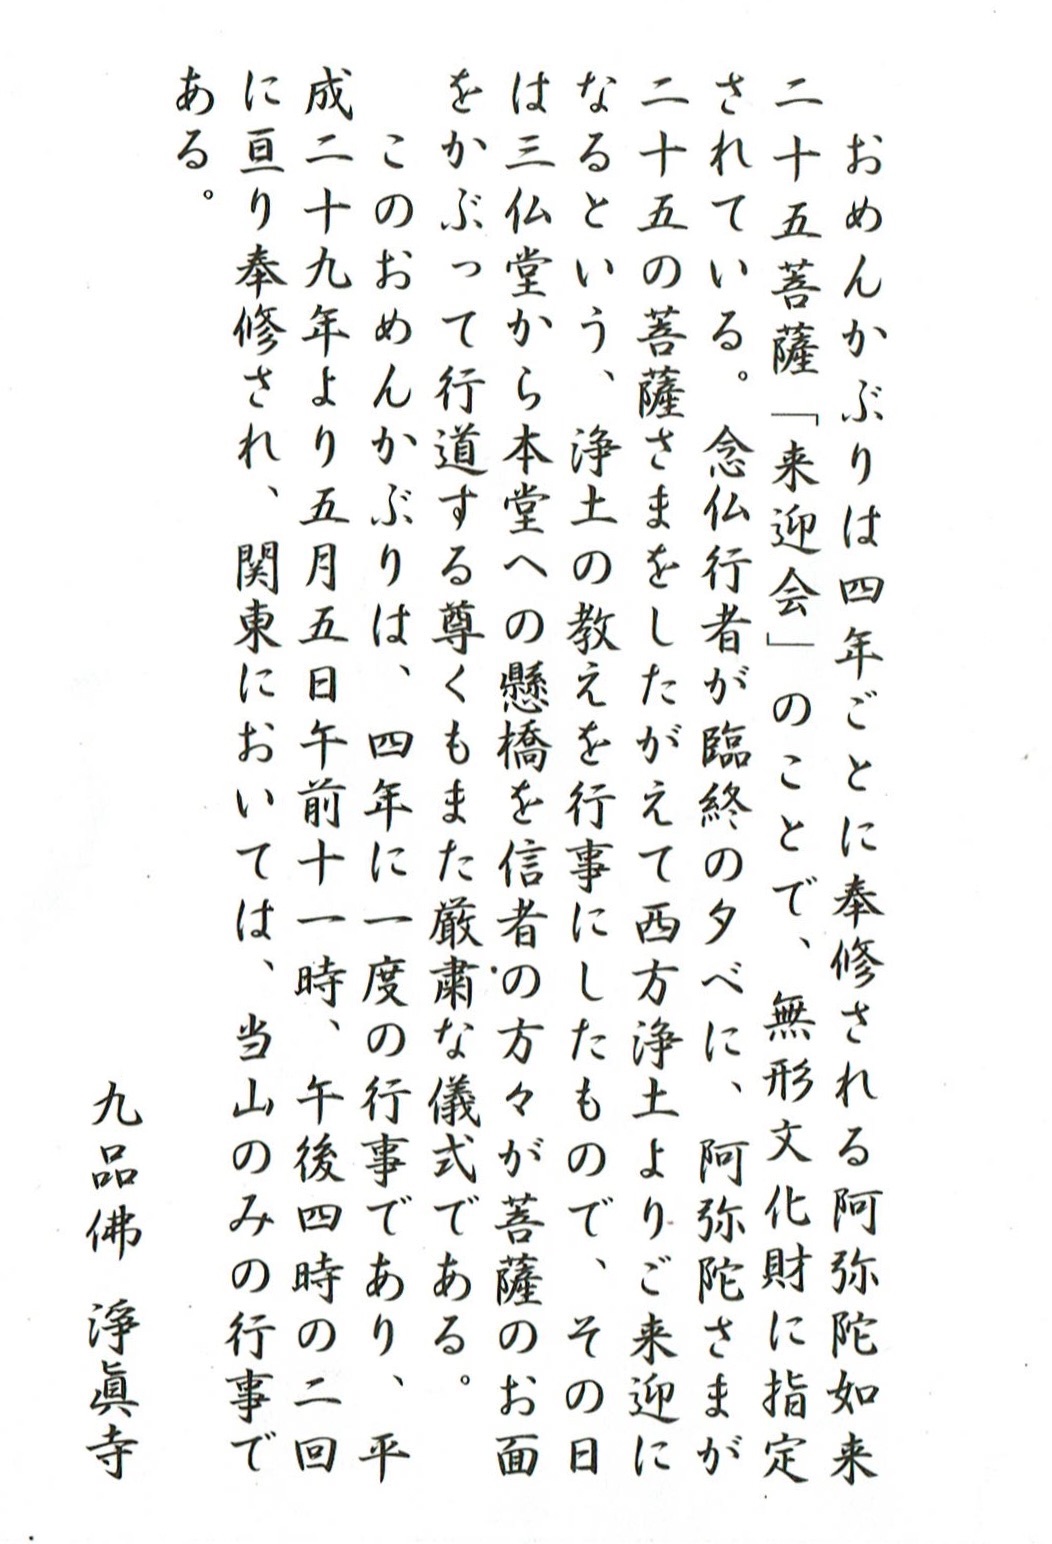 おめんかぶりは四年ごとに奉修される阿弥陀如来
二十五菩薩「来迎会」のことで、無形文化財に指定
されている。念仏行者が臨終の夕べに、阿弥陀さまが
二十五の菩薩さまをしたがえて西方浄土よりご来迎に
なるという、浄土の教えを行事にしたもので、その日
は三仏堂から本堂への懸橋を信者の方々が菩薩のお面
をかぶって行道する尊くもまた厳粛な儀式である。
このおめんかぶりは、四年に一度の行事であり、平
成二十九年より五月五日午前十一時、午後四時の二回
に亘り奉修され、関東においては、当山のみの行事で
ある。
九品佛 淨眞寺